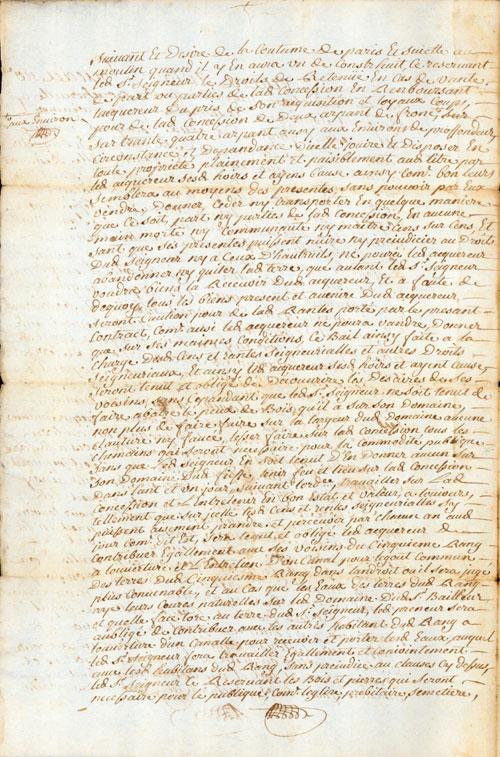 Suivant Et Desire de la Coutume de paris Et suiette au
moulin quand il y En aura un de Construit le reservant
led. Sr. Seigneur le Droits de Retenue En Cas de vante
de part ou parties de lad Concession En Remboursant
laquereur du pris de son aquisition et loyaux Coups,
pour de lad Concession de Deux arpant de front, sur
aux Environ
sur trante quatre arpant aussy aux Environs de proffondeur
Circonstance, Et dependance D'uelle Jouire Et disposer En
toute propriete plainement et paisiblement au titre par
led aquereur ses hoirs et ayens Cause ainsy com. bon leurs
Semblera au moyens des presentes, sans pouvoir par Eux
vendre, Donner, Ceder ny transporter En quelque maniere
que Ce soit, part ny parties de lad Concession, En aucune
main morte ny Communauté ny maitre Cens sur Cens, Et
sant que ses presentes puissent nuire ny prejudicier au droits
Dud Seigneur ny a Ceux D'hautruits, ne poure led aquereur
abandonner ny quiter lad terre, que autant led Sr. Seigneur
voudra biens la Recevoir Dud aquereur, Et a faute de
dequoy tous les biens present et avenire Dud aquereur,
seront Caution pour de lad Rantes porté par le presant
Contract, Com. aussi led aquereur ne poura vandre, Donner
que sur Ses maimes Conditions, Ce Bail ainsy faite a la
charge Desd Cens et rantes Seigneurialles et autres Droits
Seigneuriaux, Et ainsy led aquereur ses hoirs et ayent Cause
Seront tenuit et obligé de Decouvrire les Deserres de Ses
voisins, sans Cependant que led Sr. Seigneur ne soit tenuit de
faire abatre le peux de Bois, qu'il a sur son Domaine,
non plus de faire faire sur la largeur dud Domaine aucune
Clauture ny faucé, lesser faire sur lad Concession tous les
chemains qui seront necessaire pour la Commodité publique
sans que led Seigneur En soit tenuit D'En Donner aucun sur
son Domaine Dud fieffe, tenir feu et lieu sur lad Concession
dans lant et un jour, suivant lordre, travailler sur Lad
Concession et L'Entretenir En bon Estat et valeur, a toujours,
tellement que sur icelle les Cens et rentes Seigneurialles sy
puissent aisement prandre et percevoir par chacun an aud
jour Com. dit Est, sera tenuit et obligé led aquereur de
Contribuer Egallement aux Ses voisins du Cinquieme Rang
a louverture et L'Entretien D'un Canal pour Egout Commun
des terres Dud Cinquiesme Rang dans landroit ou il sera jugé
plus Convenable, et au Cas que les Eaux des terres dud Rang
aye leurs Coures naturelles sur les Domaine Dud Sr. Bailleur
et quelle face tore au terre dud Sr. Seigneur, led preneur sera
aubligé de Contribuer avec les autres habitant Dud Rang a
louverture d'un Canalle pour recevoir et porter les Eaux, auquel
led Sr. Seigneur fera travailler Egallement et Conjointement
avec les habitans dud Rang, sans prejudice au clauses Cy dessus,
led Sr. Seigneur Ce Reservant les Bois et pierres qui Seront
necessaire pour le publique, Com. leglise, presbitaire, semetiere,